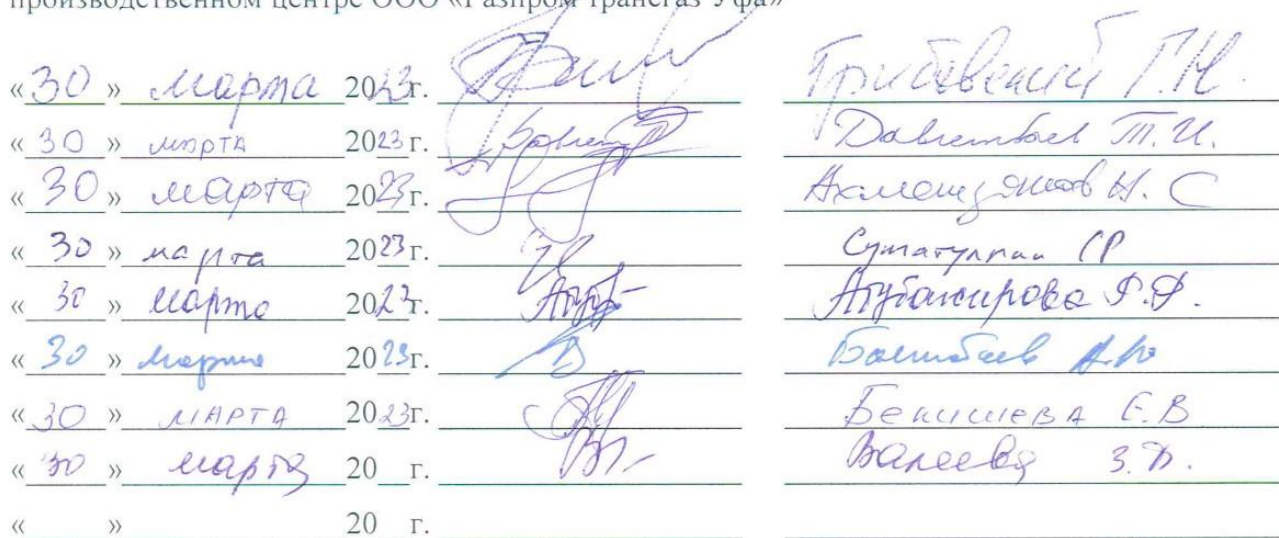 производственном центре ООО «Газпром трансгаз Уфа»
«30» марта 2023г. Грибовский Г.Н.
«30» марта 2023г. Давлетбаев Т.И.
«30» марта 2023г. Н. С
«30» марта 2023г. СР
«30» марта 202 г. Абубакирова Ф.Ф.
«30» марта 2023г. А.Ю
«30» МАРТА 2023г. БЕКИШЕВА Е.В
«30» марта 20 г. Валеева З.
« » 20 г.